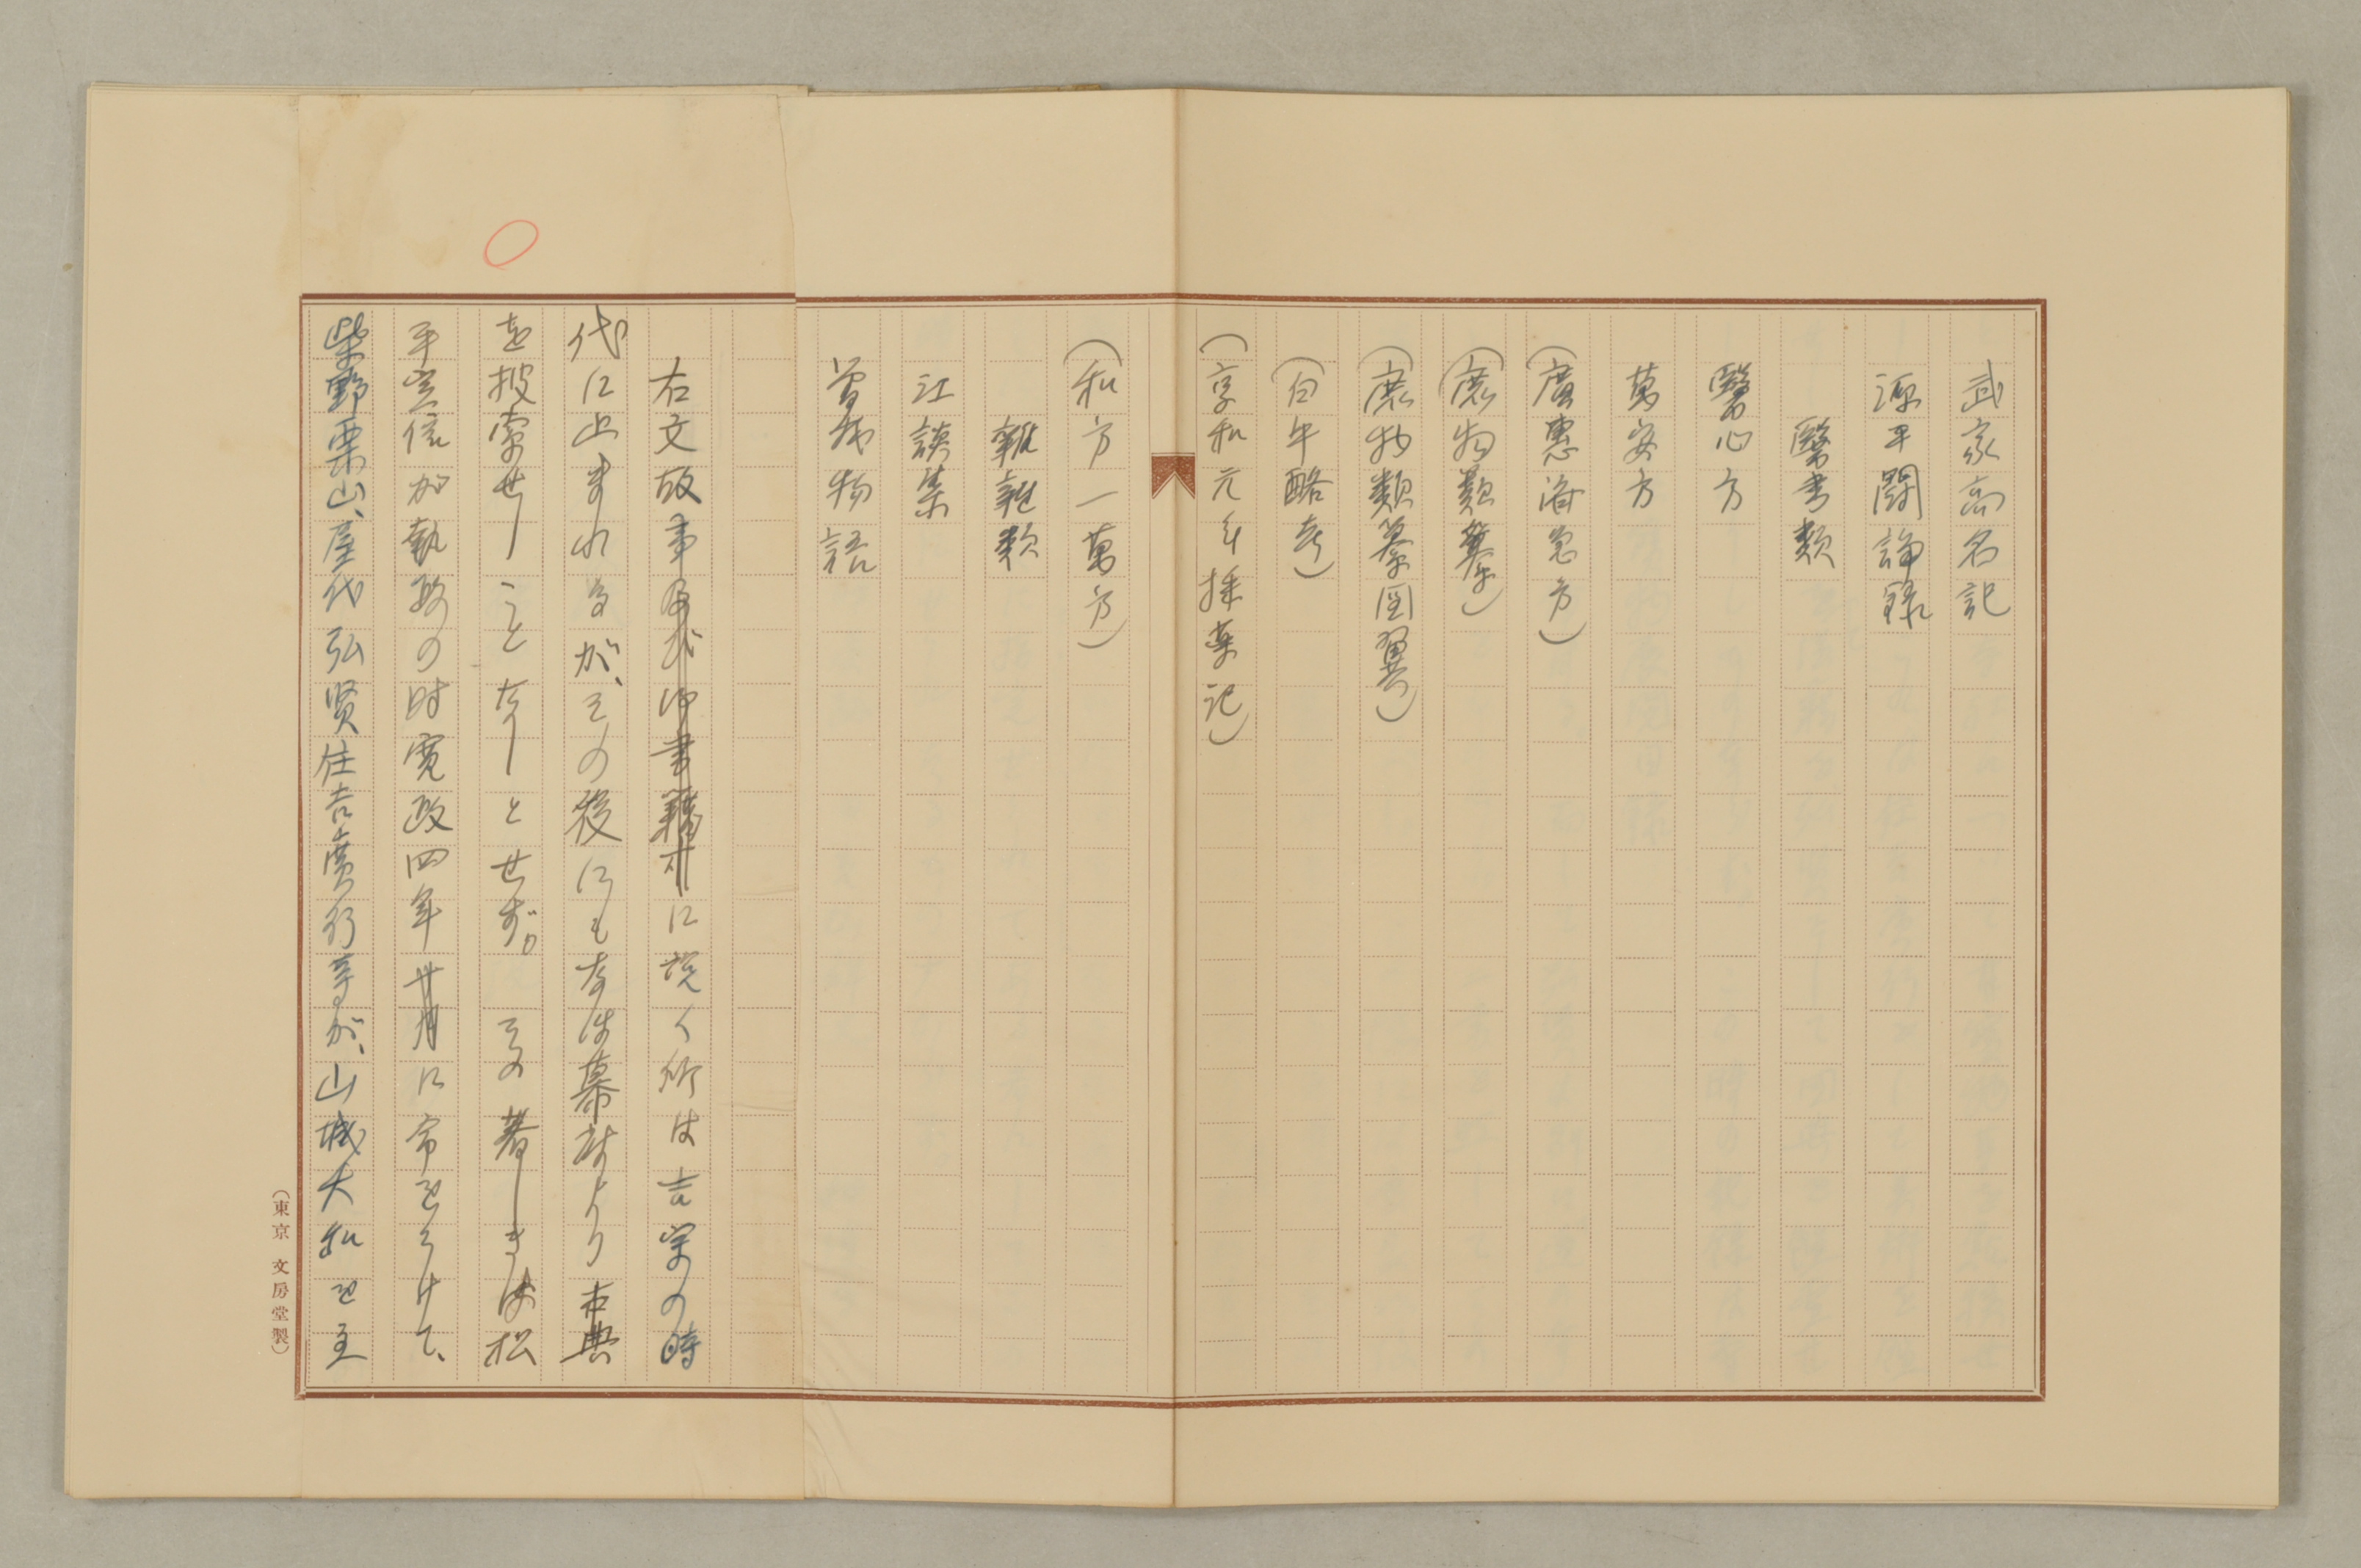 武家高名記
源平闘諍録
醫書類
醫心方
萬安方
(廣惠濟急方)
(庶物類纂)
(庶物類纂図翼)
(白牛酪考)
(享和元年採薬記)
(和方一萬方)
雜糅類
江談集
曽我物語
右文故事及び御書籍来に説く所は吉宗の時
代に止まれるが、その後にもなほ幕府より古典
を捜索せしことなしとせず。その著しきは松
平定信が執政の時寛政四年十月に命をうけて、
柴野栗山、屋代弘賢住吉廣行等が、山城大和を主
(東京 文房堂製)